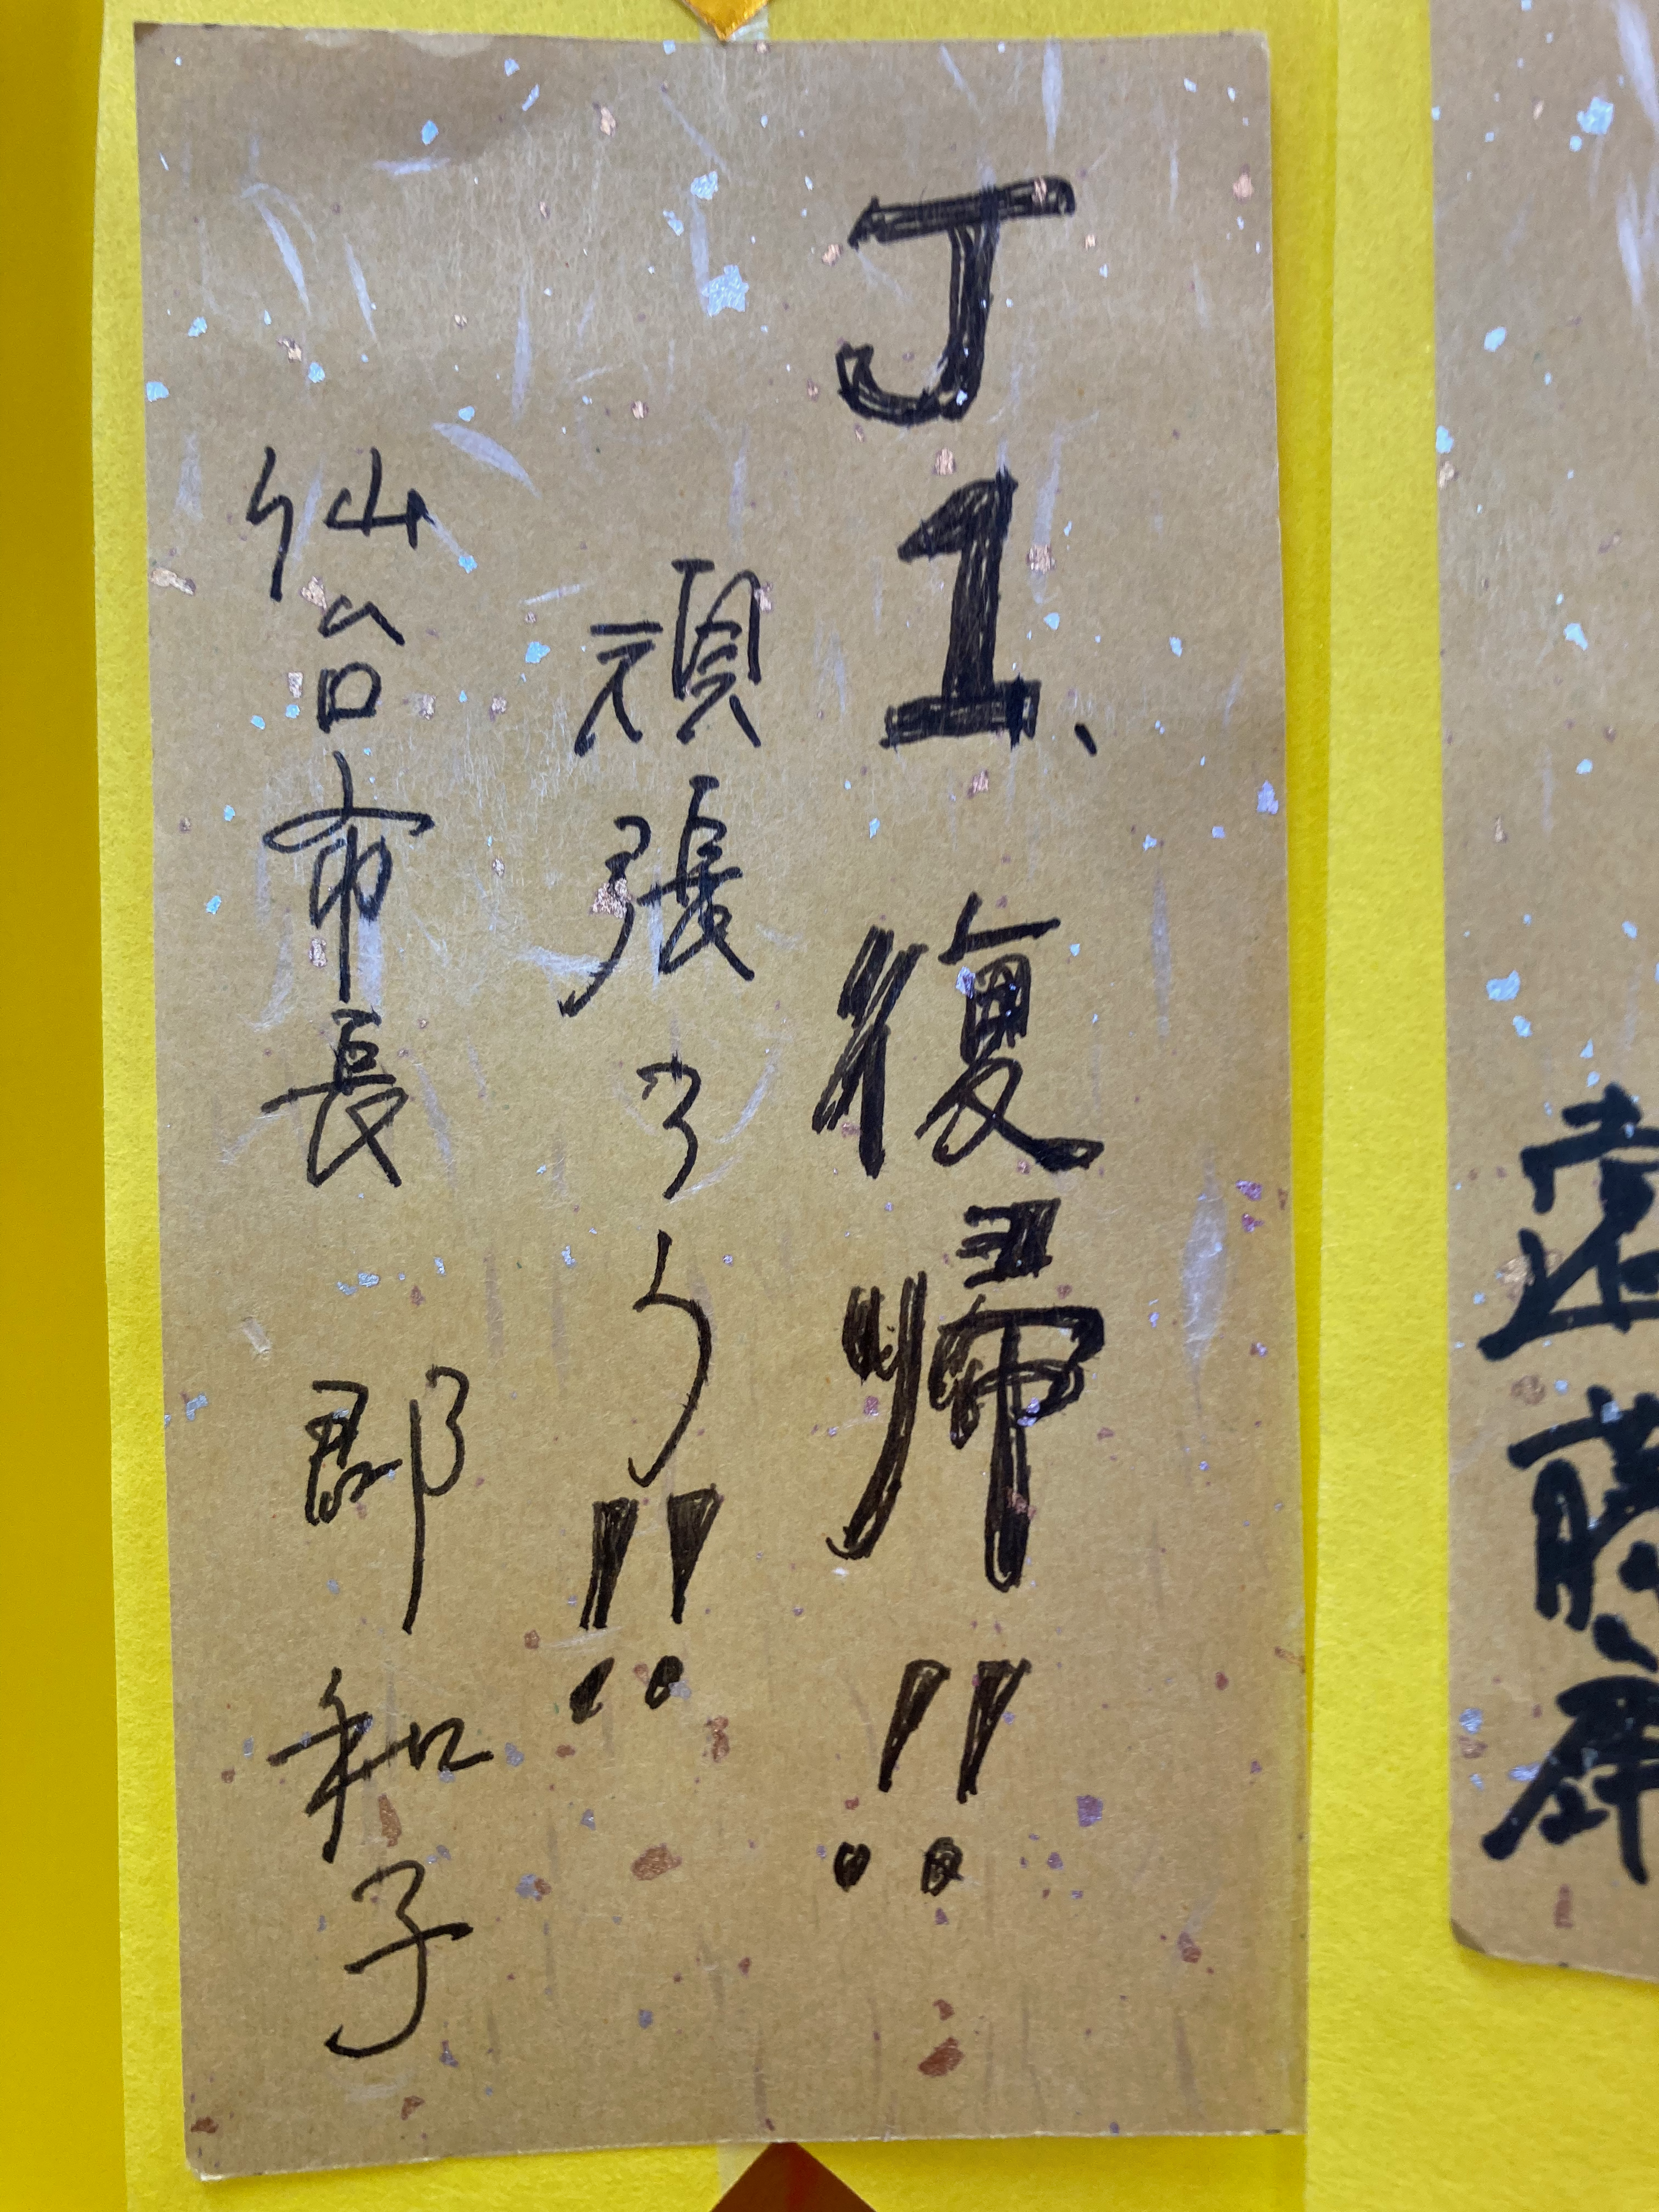 遠藤
J1、復帰!!
頑張ろう!!
仙台市長 郡 和子